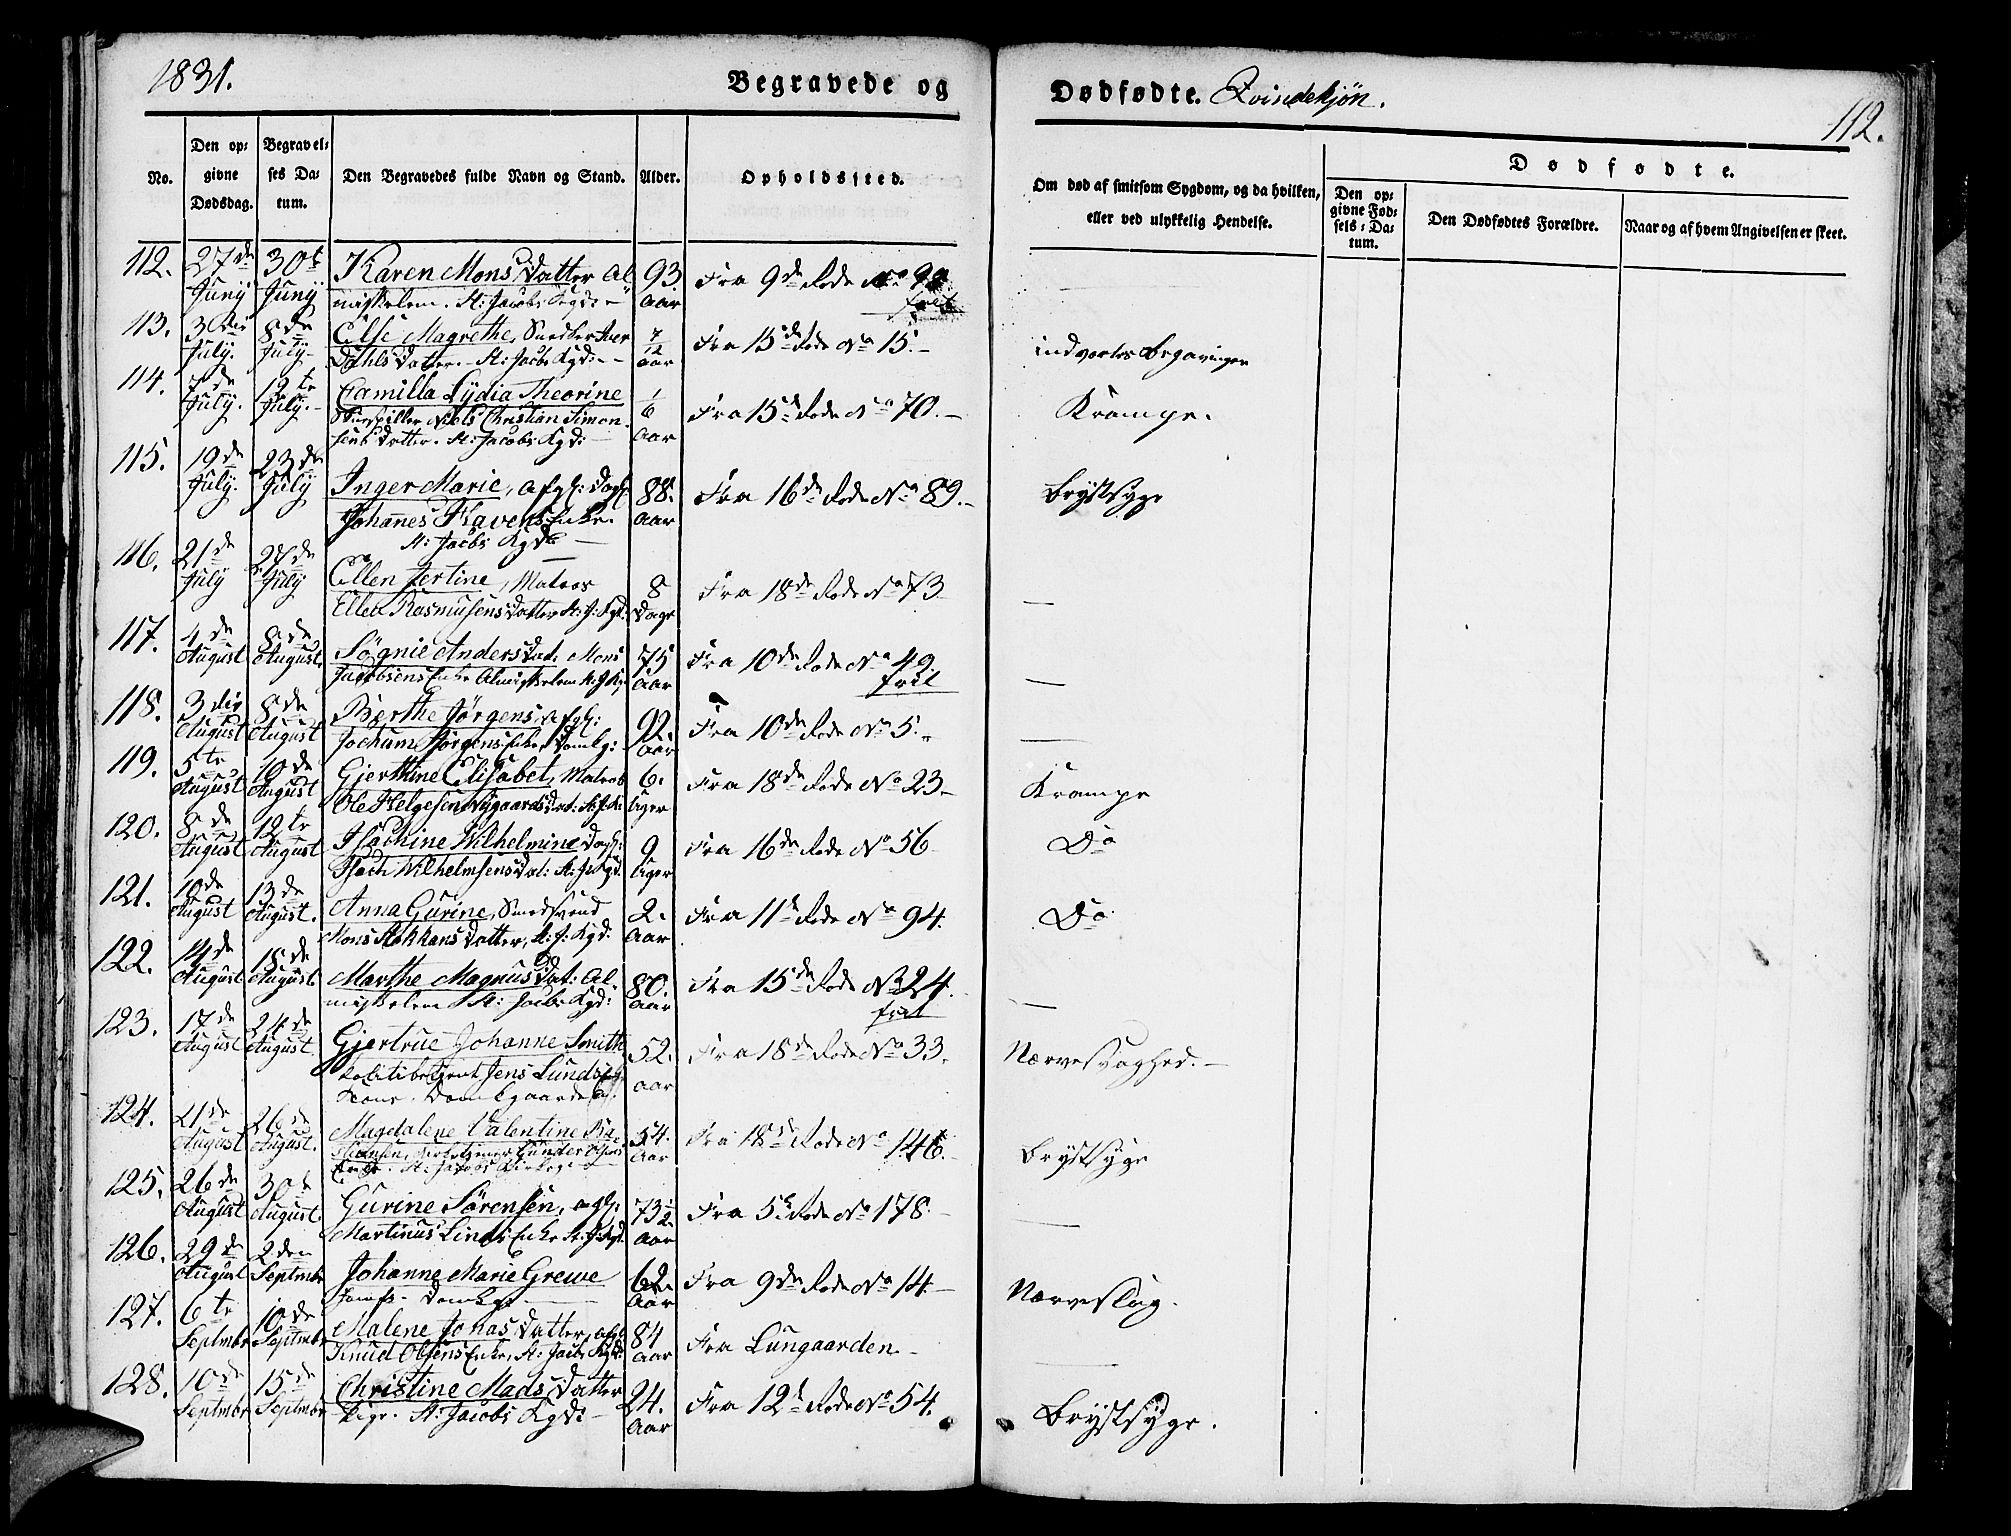 1831.
Begravede og
Dødfødte. Qvindekjøn.
112.
No.
Den op-
givne
Dødsdag.
Begravel-
ses Da-
tum.
Den Begravedes fulde Navn og Stand.
Alder.
Opholdssted.
Om død af smitsom Sygdom, og da hvilken,
eller ved ulykkelig Hendelse.
Dødfødte.
Den op-
givne Fød-
sels-Da-
tum.
Den Dødfødtes Forældre.
Naar og af hvem Angivelsen er skeet.
112. 27de Juny 30te Juny Karen Mons Datter Al
miskelem. St: Jacobs Kgd: 93 Aar Fra 9de Rode No 99
frit
113. 3die July. 8de July Else Magrethe, Snedker Iver
Dahls Datter. St: Jacobs Kgd: 7/12 Aar Fra 15de Rode No 15.
indvortes Begavinger
114. 7de July. 12te July. Camilla Lydia Theorine
Niels Christian Simon-
sens Datter. St: Jacobs Kgd: 1/6 Aar Fra 15de Rode No 70.
Krampe.
115. 19de July. 23de July Inger Marie, afg: Dagl:
Johannes Ravens Enke.
St: Jacobs Kgd: 88. Aar Fra 16de Rode No 89.
Brystsyge
116. 21de July 27de July Ellen Jertine, Matros
Elleb Rasmusens Datter St: J: Kgd: 8 Dage Fra 18de Rode No 73
117. 4de August 8de August Søgnie Anders Dat: Mons
Jacobsens Enke Almiskelem St: J: Kg: 75 Aar Fra 10de Rode No 49.
frit
118. 3die August 8de August Berthe Jørgens, afgl:
Jochum Jørgens Enke, Domkg: 92. Aar Fra 10de Rode No 5.
119. 5te August 10de August Gjerthine Elisabet, Matros
Ole Helgesen Nygaards Dat: St: J: K: 6. Uger Fra 18de Rode No 23.
Krampe
120. 8de August 12te August Isachine Wilhelmine Dagl:
Isach Wilhelmsens Dat: St: J: Kgd. 9 Uger Fra 16de Rode No 56
Do
121. 10de August 13de August. Anna Gurine, Smedsvend
Mons Hakkans Datter, St: J: Kgd. 2. Aar Fra 11te Rode No 94.
Do
122. 14de August 18de August. Marthe Magnus Dat: Al-
miskelem St: Jacobs Kgd: 80. Aar Fra 15de Rode No 24.
frit
123. 17de August 24de August Gjertrue Johanne Smith
Politibetjent Jens Lunds
Kone. Domkgaarden. 52. Aar Fra 18de Rode No 33.
Nervesvaghed.
124. 21de August 26de August. Magdalene Valentine
Gunder Olsens
Enke. St: Jacobs Kirkeg: 54. Aar Fra 18de Rode No 146.
Brystsyge
125. 26de August 30te August. Gurine Sørensen, afgl:
Martinus Linds Enke St: J: Kgd. 73 1/2 Aar Fra 5te Rode No 178.
126. 29de August 2den Septmbr Johanne Marie Grewe
Jomfr. Domkgd 62. Aar Fra 9de Rode No 14.
Nerveslag.
127. 6te Septmbr 10de Septmbr Malene Jonas Datter, afgl
Knud Olsens Enke, St: Jacobs Kgd: 84 Aar Fra Lungaarden.
128. 10de Septmbr 15de Septmbr Christine Mads Datter
Pige. St: Jacobs Kgd: 24. Aar Fra 12te Rode No 54.
Brystsyge.